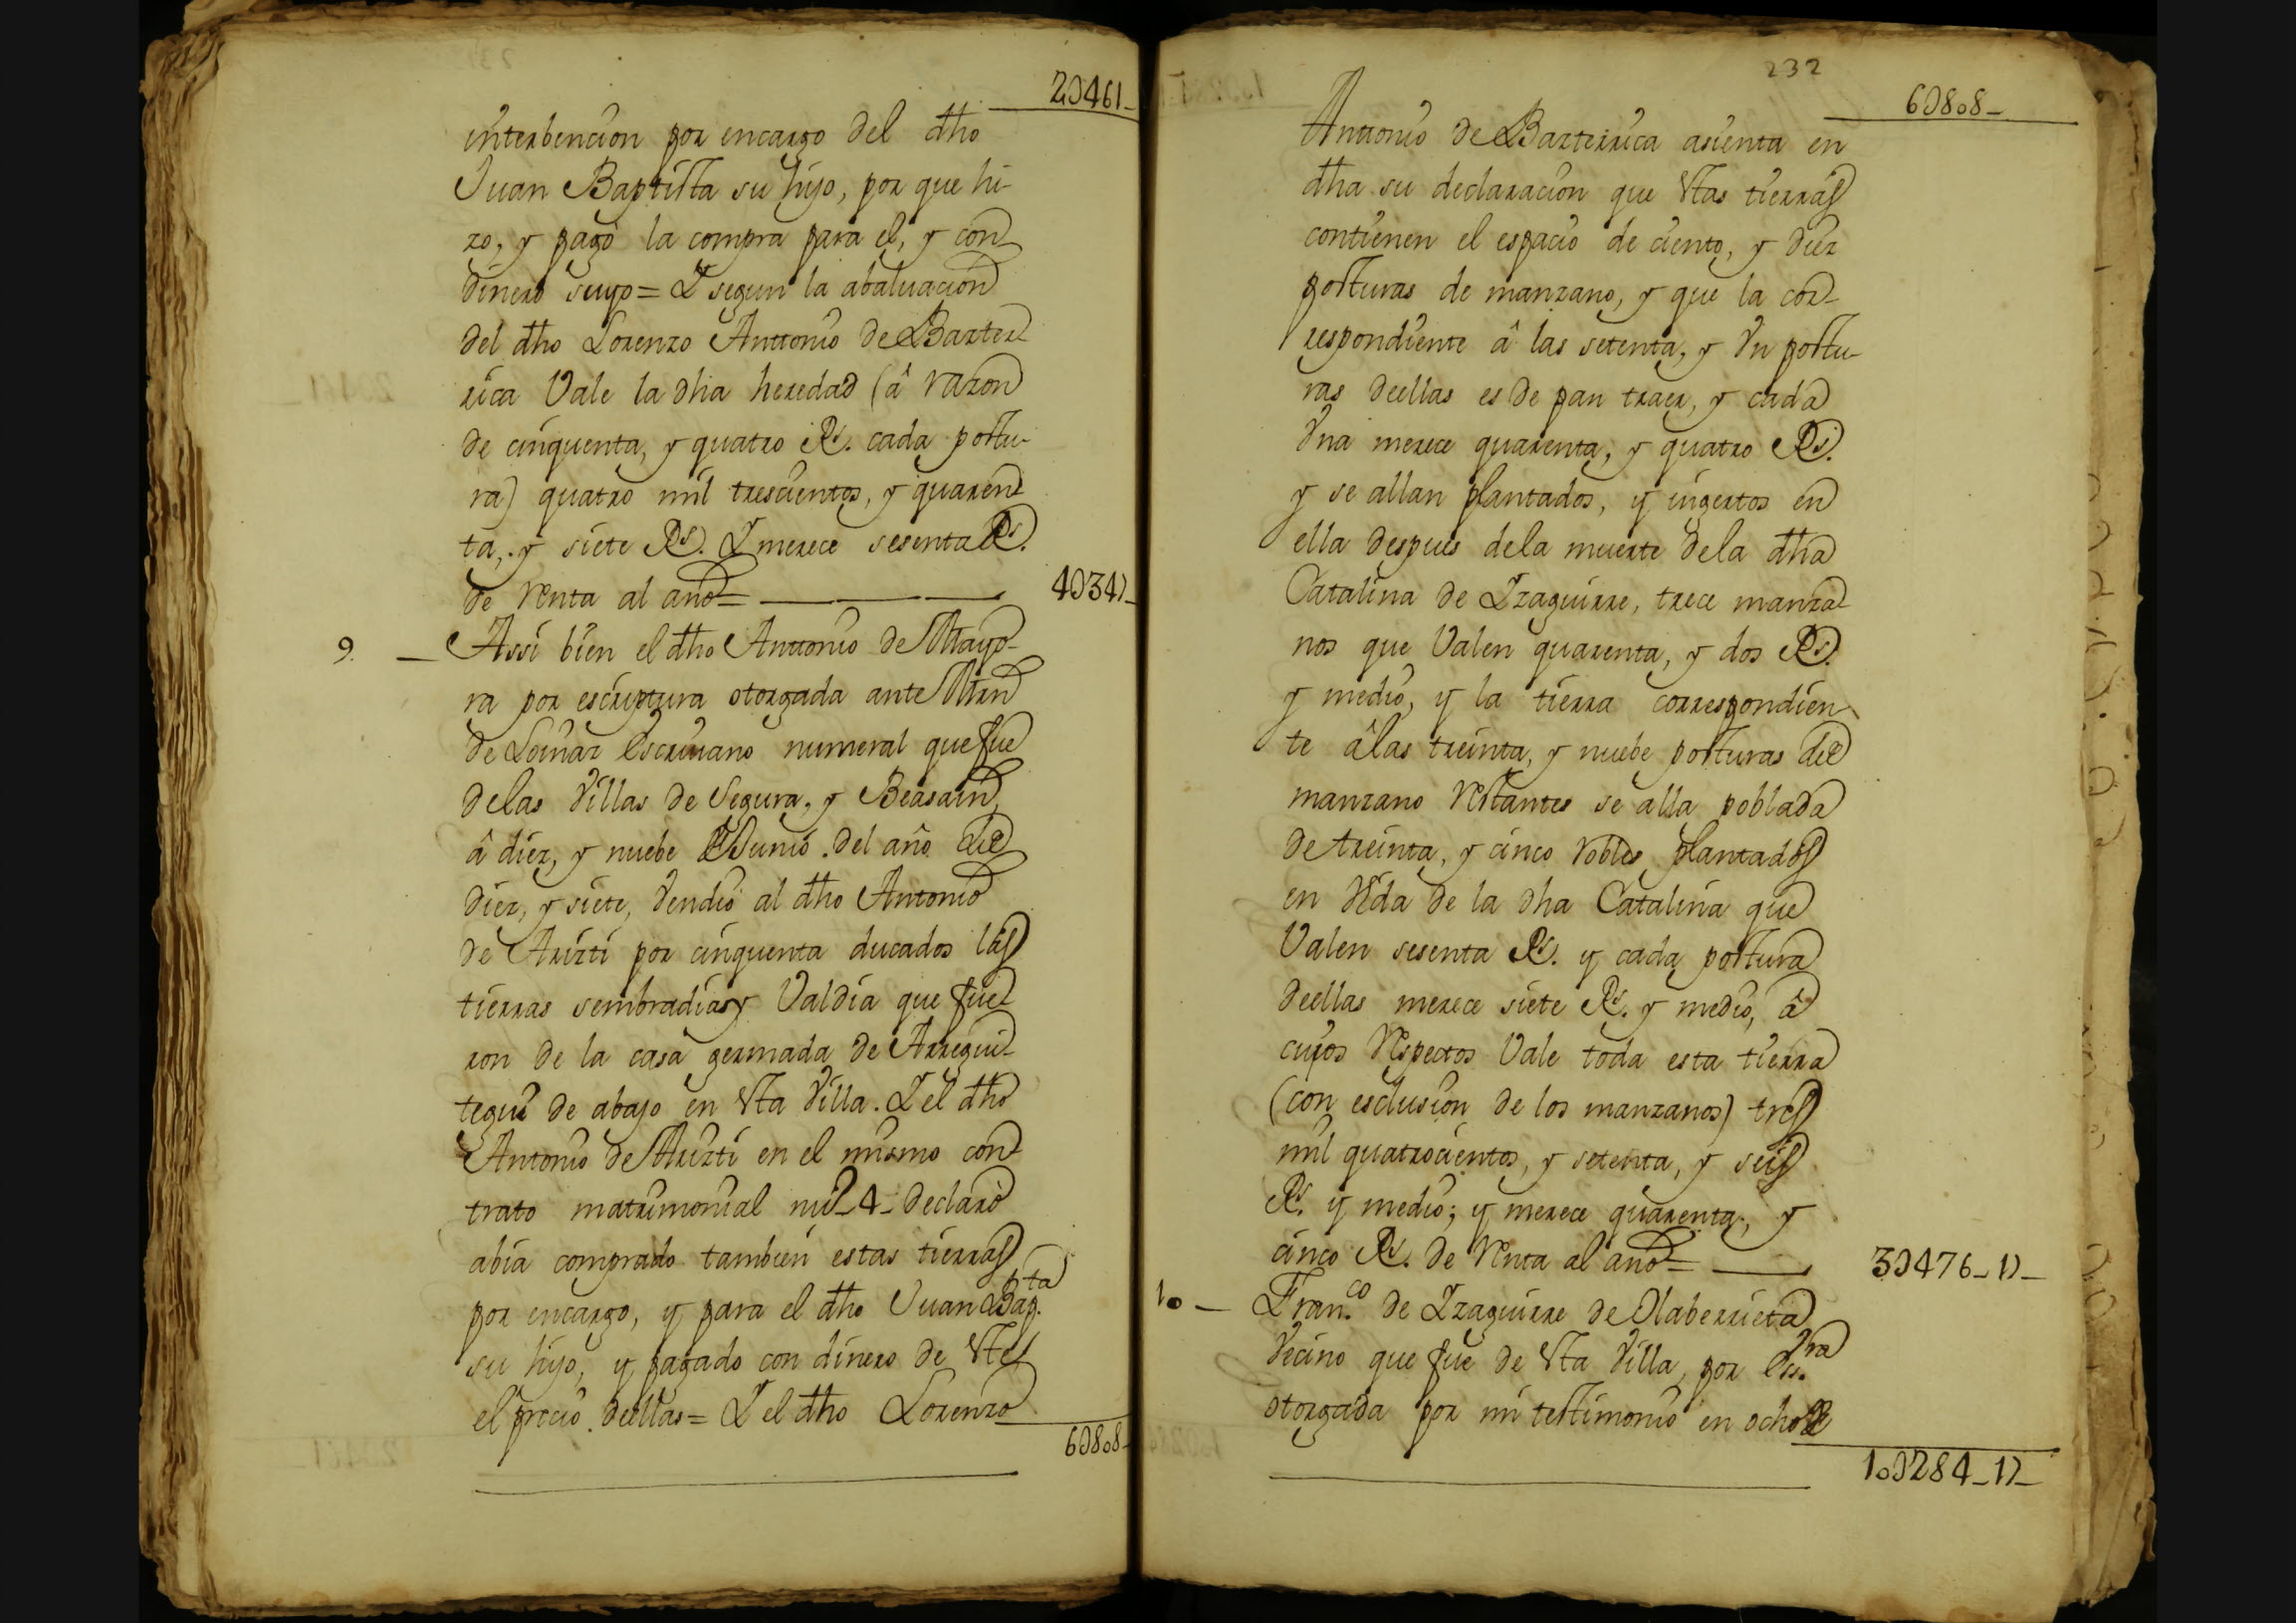 2U461_
interbencion por encargo del dho
Juan Baptista su hijo, por que hi-
zo, y pagò la compra para el, y con
dinero suyo= Y segun la abaluacion
del dho Lorenzo Anttonio de Barter-
rica Vale la dha heredad (â razon
de cinquenta, y quatro Rs. cada postu-
ra) quatro mil trescientos, y quaren-
ta, y siete Rs. Y merece sesenta Rs.
de renta al año= 4U347_
9. _ Assi bien el dho Anttonio de Mayo-
ra por escriptura otorgada ante Mrn
de Loinaz Escrivano numeral que fue
delas Villas de Segura, y Beasain,
â diez, y nuebe de Junio del año de
diez, y siete, Vendio al dho Antonio
de Arizti por cinquenta ducados las
tierras sembradias y Valdia que fue-
ron de la casa germada de Arregui-
tegui de abajo en Vta Villa. Y el dho
Antonio de Arizti en el mismo con-
trato matrimonial nu_4_ declarò
abia comprado tambien estas tierras
por encargo, y para el dho Juan Bap.ta
su hijo, y pagado con dinero de Vte
el precio deellas= Y el dho Lorenzo
6U808_
232
6U808_
Anttonio de Barterrica asienta en
dha su declaracion que Vtas tierras
contienen el espacio de ciento, y diez
posturas de manzano, y que la cor-
respondiente â las setenta, y Vn postu-
ras deellas es de pan traer, y cada
Vna merece quarenta, y quatro Rs.
y se allan plantados, y ingertos en
ella despues dela muerte dela dha
Catalina de Yzaguirre, trece manza-
nos que Valen quarenta, y dos Rs.
y medio, y la tierra correspondien-
te âlas treinta, y nuebe posturas de
manzano restantes se alla poblada
de treinta, y cinco robles plantados
en Vida de la dha Catalina que
Valen sesenta Rs. y cada postura
deellas merece siete Rs. y medio, â
cuios respectos Vale toda esta tierra
(con esclusion de los manzanos) tres
mil quatrocientos, y setenta, y seis
Rs. y medio; y merece quarenta, y
cinco Rs. de renta al año= 3U476_17_
10 _ Fran.co de Yzaguirre de Olaberrieta
Vecino que fue de Vta Villa, por Ess.ra
otorgada por mi testimonio en ocho de
10U284_17_